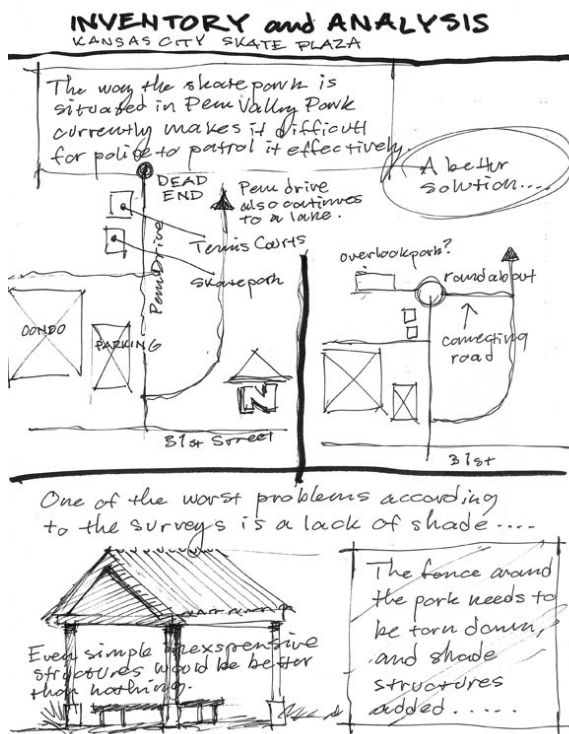 INVENTORY and ANALYSIS
KANSAS CITY SKATE PLAZA
The way the skatepark is
situated in Penn Valley Park
currently makes it difficult
for police to patrol it effectively.
DEAD
END
Penn drive
also continues
to a lake.
Tennis Courts
Skatepark
Penn Drive
CONDO
PARKING
N
31st Street
A better
solution....
overlook park?
roundabout
connecting
road
31st
One of the worst problems according
to the surveys is a lack of shade ....
Even simple inexspensive
structures would be better
than nothing.
The fence around
the park needs to
be torn down,
and shade
structures
added .....